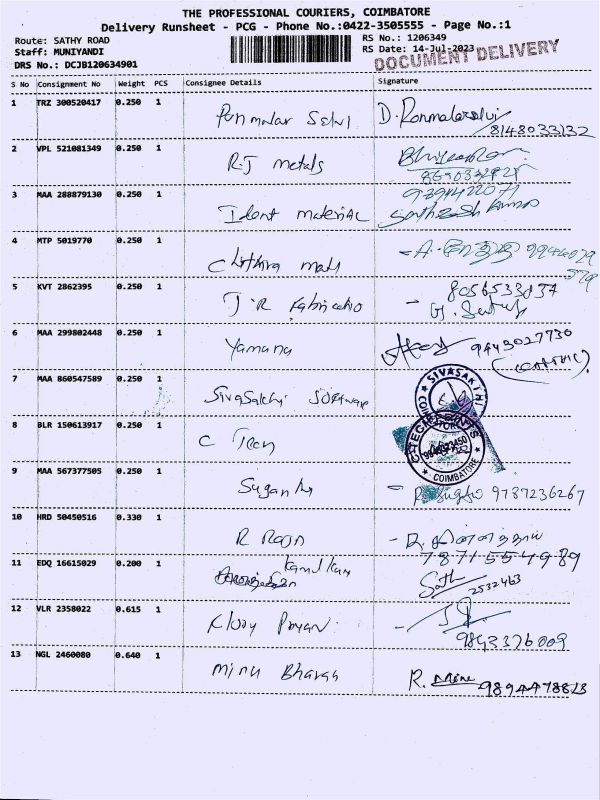 THE PROFESSIONAL COURIERS, COIMBATORE
Delivery Runsheet - PCG - Phone No.:0422-3505555 - Page No.:1
Route: SATHY ROAD
Staff: MUNIYANDI
DRS No.: DCJB120634901
RS No.: 1206349
RS Date: 14-Jul-2023
DOCUMENT DELIVERY
S No Consignment No Weight PCS Consignee Details Signature
1 TRZ 300520417 0.250 1 Ponmalar Selvi D. Ponmalarselvi
8148033132
2 VPL 521081349 0.250 1 R.J metals
3 MAA 288879130 0.250 1 Ident material Satheesh Kumar
4 MTP 5019770 0.250 1 Chithra
5 KVT 2862395 0.250 1 J.R Fabricatio
8056533837
6 MAA 299802448 0.250 1 Yamuna 9443027730
7 MAA 860547589 0.250 1 Sivasakthi Software
SIVASAKTHI
8 BLR 150613917 0.250 1 C Tech
COIMBATORE
9 MAA 567377505 0.250 1 Sugantha 9787236267
10 HRD 50450516 0.330 1 R Rajan
7871554989
11 EDQ 16615029 0.200 1
Sath
2532463
12 VLR 2358022 0.615 1
9843376009
13 NGL 2460080 0.640 1 Minu Bharas R. Minu
9894478813